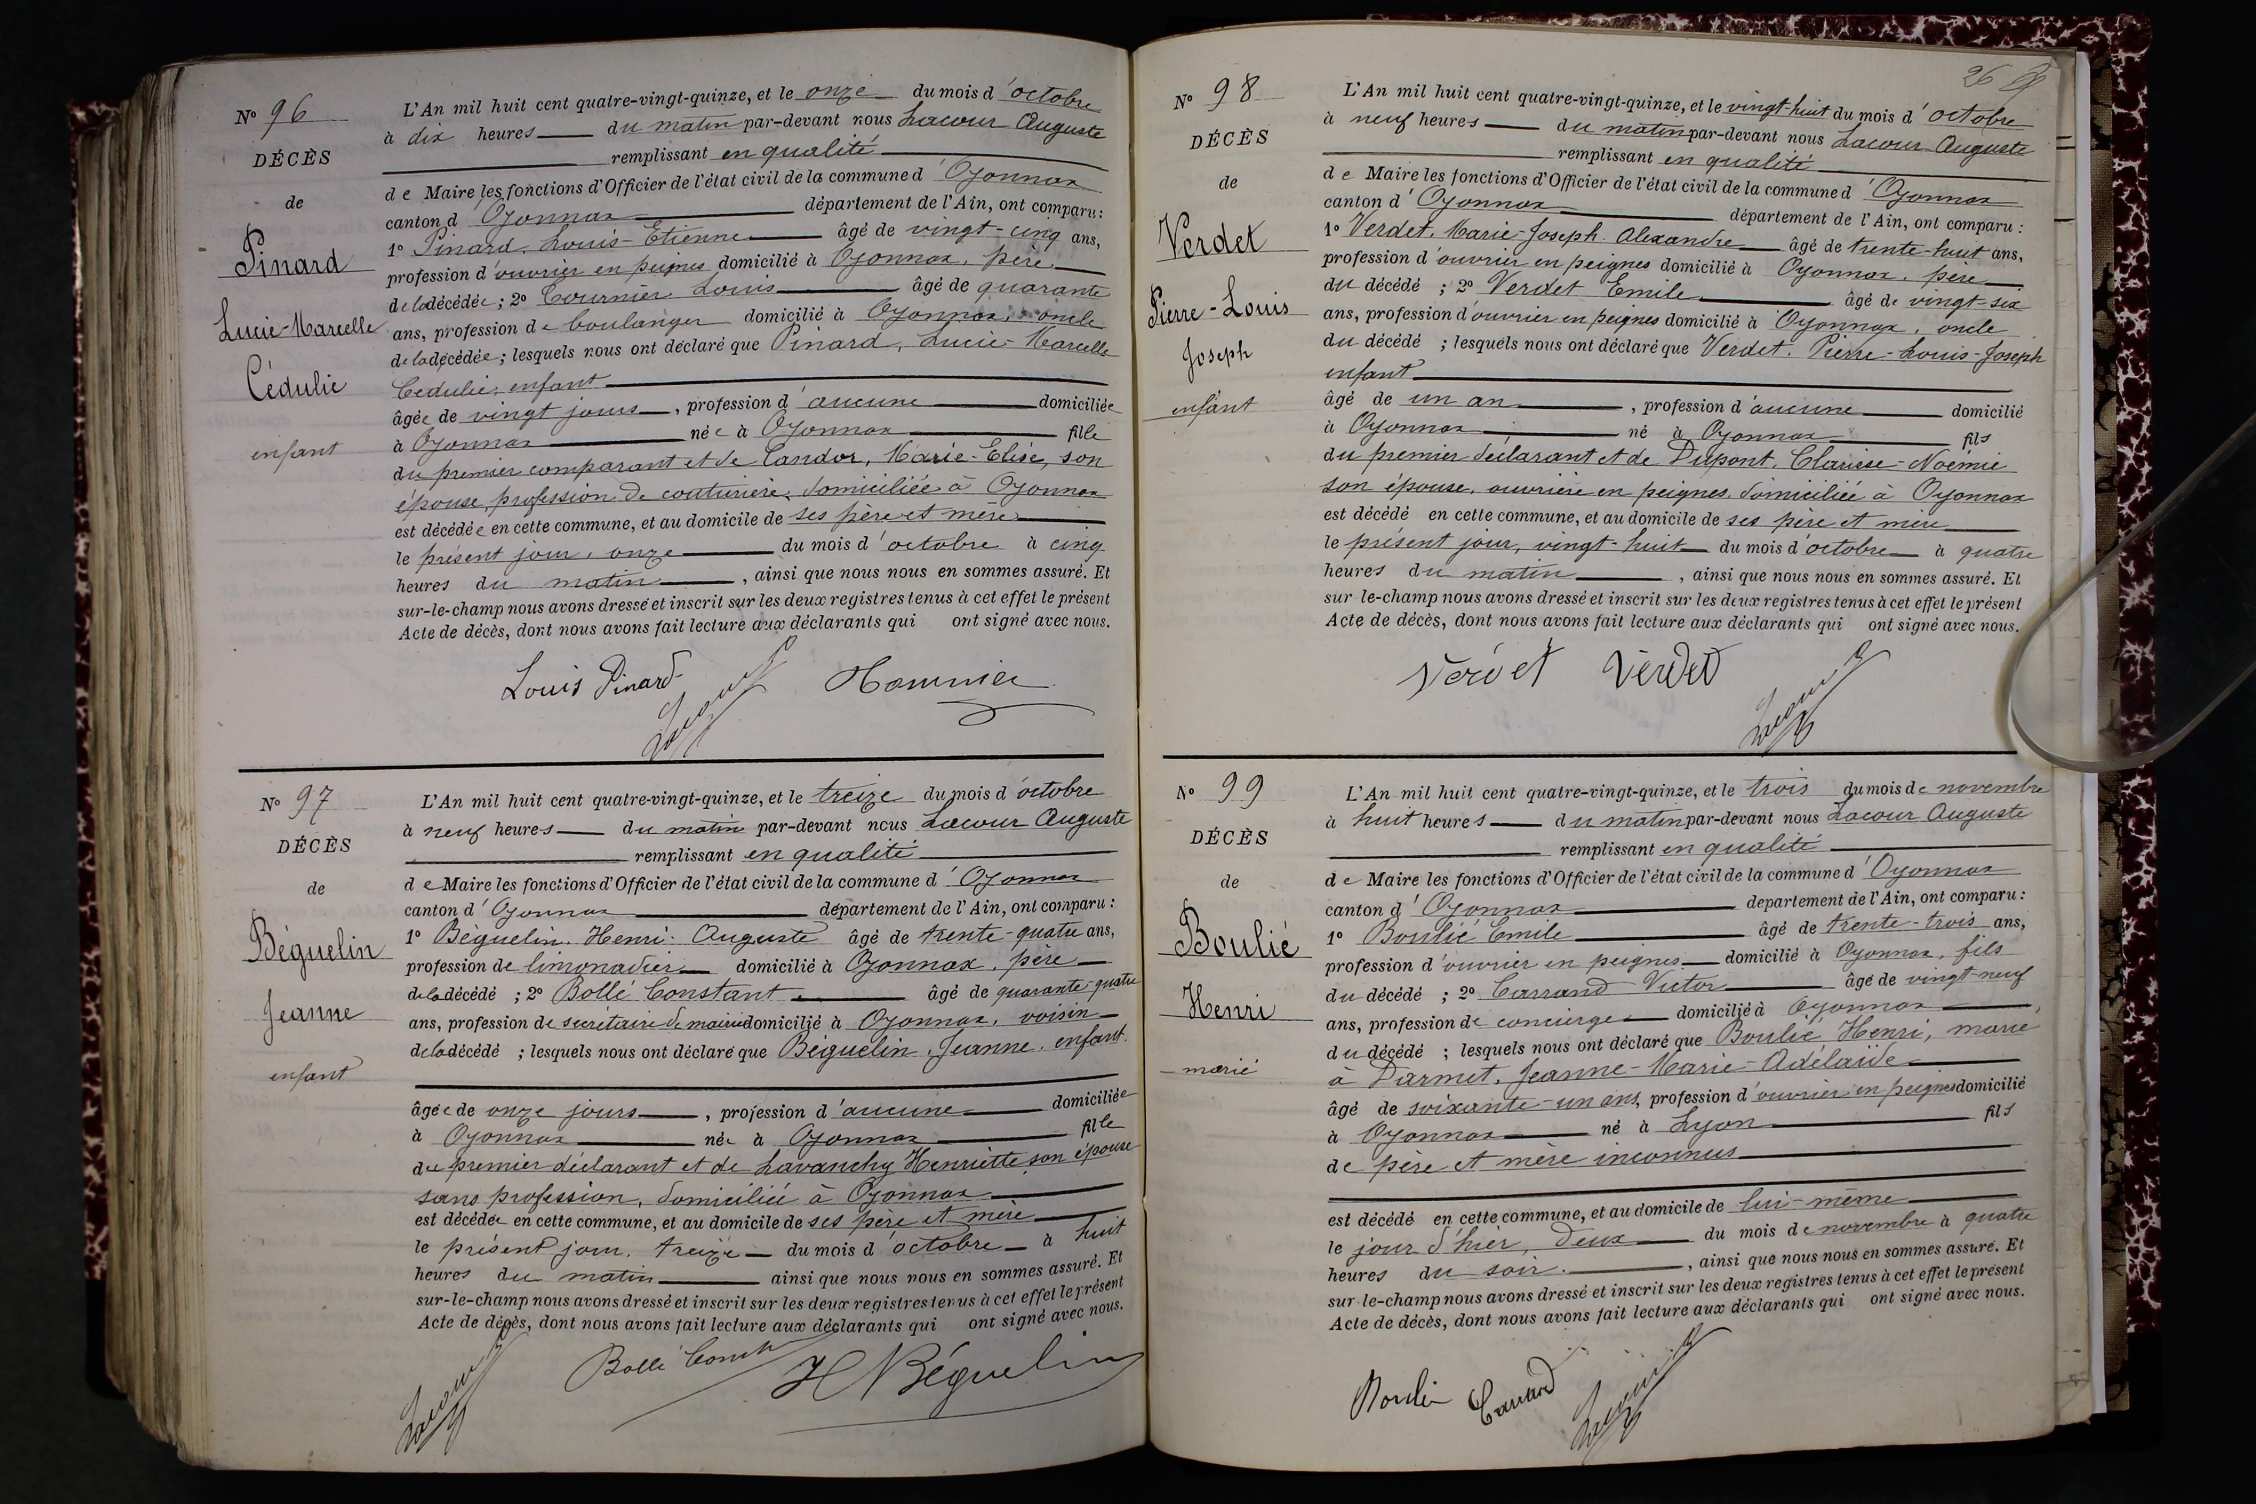 Nº 96
DÉCÈS
de
Pinard
Lucie-Marcelle
Cédulie
enfant
L'An mil huit cent quatre-vingt-quinze, et le onze du mois d'octobre
à dix heures du matin par-devant nous Lacour Auguste
remplissant en qualité
de Maire les fonctions d'Officier de l'état civil de la commune d'Oyonnax
canton d'Oyonnax département de l'Ain, ont comparu :
1º Pinard, Louis-Etienne âgé de vingt-cinq ans,
profession d'ouvrier en peignes domicilié à Oyonnax, père
de la décédée ; 2º Tournier Louis âgé de quarante
ans, profession de boulanger domicilié à Oyonnax, oncle
de la décédée ; lesquels nous ont déclaré que Pinard, Lucie-Marcelle
Cédulie, enfant
âgée de vingt jours, profession d'aucune domiciliée
à Oyonnax née à Oyonnax fille
du premier comparant et de Tandor, Marie-Elise, son
épouse, profession de couturière, domiciliée à Oyonnax
est décédée en cette commune, et au domicile de ses père et mère
le présent jour, onze du mois d'octobre à cinq
heures du matin, ainsi que nous nous en sommes assuré. Et
sur-le-champ nous avons dressé et inscrit sur les deux registres tenus à cet effet le présent
Acte de décès, dont nous avons fait lecture aux déclarants qui ont signé avec nous.
Louis Pinard
Lacour
Nº 97
DÉCÈS
de
Béguelin
Jeanne
enfant
L'An mil huit cent quatre-vingt-quinze, et le treize du mois d'octobre
à neuf heures du matin par-devant nous Lacour Auguste
remplissant en qualité
de Maire les fonctions d'Officier de l'état civil de la commune d'Oyonnax
canton d'Oyonnax département de l'Ain, ont comparu :
1º Béguelin, Henri-Auguste âgé de trente-quatre ans,
profession de limonadier domicilié à Oyonnax, père
de la décédé ; 2º Bollé Constant âgé de quarante-quatre
ans, profession de secrétaire de mairie domicilié à Oyonnax, voisin
de la décédé ; lesquels nous ont déclaré que Béguelin, Jeanne, enfant
âgée de onze jours, profession d'aucune domiciliée
à Oyonnax née à Oyonnax fille
du premier déclarant et de Lavanchy Henriette son épouse
sans profession, domiciliée à Oyonnax
est décédée en cette commune, et au domicile de ses père et mère
le présent jour, treize du mois d'octobre à huit
heures du matin ainsi que nous nous en sommes assuré. Et
sur-le-champ nous avons dressé et inscrit sur les deux registres tenus à cet effet le présent
Acte de décès, dont nous avons fait lecture aux déclarants qui ont signé avec nous.
Lacour
Bollé Const
H Béguelin
26
Nº 98
DÉCÈS
de
Verdet
Pierre-Louis
Joseph
enfant
L'An mil huit cent quatre-vingt-quinze, et le vingt-huit du mois d'octobre
à neuf heures du matin par-devant nous Lacour Auguste
remplissant en qualité
de Maire les fonctions d'Officier de l'état civil de la commune d'Oyonnax
canton d'Oyonnax département de l'Ain, ont comparu :
1º Verdet, Marie-Joseph-Alexandre âgé de trente-huit ans,
profession d'ouvrier en peignes domicilié à Oyonnax, père
du décédé ; 2º Verdet Emile âgé de vingt-six
ans, profession d'ouvrier en peignes domicilié à Oyonnax, oncle
du décédé ; lesquels nous ont déclaré que Verdet, Pierre-Louis-Joseph
enfant
âgé de un an, profession d'aucune domicilié
à Oyonnax né à Oyonnax fils
du premier déclarant et de Dupont, Clarisse-Noémie
son épouse, ouvrière en peignes, domiciliée à Oyonnax
est décédé en cette commune, et au domicile de ses père et mère
le présent jour, vingt-huit du mois d'octobre à quatre
heures du matin, ainsi que nous nous en sommes assuré. Et
sur-le-champ nous avons dressé et inscrit sur les deux registres tenus à cet effet le présent
Acte de décès, dont nous avons fait lecture aux déclarants qui ont signé avec nous.
Verdet Verdet
Lacour
Nº 99
DÉCÈS
de
Boulié
Henri
marié
L'An mil huit cent quatre-vingt-quinze, et le trois du mois de novembre
à huit heures du matin par-devant nous Lacour Auguste
remplissant en qualité
de Maire les fonctions d'Officier de l'état civil de la commune d'Oyonnax
canton d'Oyonnax département de l'Ain, ont comparu :
1º Boulié Emile âgé de trente-trois ans,
profession d'ouvrier en peignes domicilié à Oyonnax, fils
du décédé ; 2º Carrand Victor âgé de vingt-neuf
ans, profession de concierge domicilié à Oyonnax
du décédé ; lesquels nous ont déclaré que Boulié Henri, marié
à Darmet, Jeanne-Marie-Adélaïde
âgé de soixante-un ans, profession d'ouvrier en peignes domicilié
à Oyonnax né à Lyon fils
de père et mère inconnus
est décédé en cette commune, et au domicile de lui-même
le jour d'hier, deux du mois de novembre à quatre
heures du soir, ainsi que nous nous en sommes assuré. Et
sur-le-champ nous avons dressé et inscrit sur les deux registres tenus à cet effet le présent
Acte de décès, dont nous avons fait lecture aux déclarants qui ont signé avec nous.
Boulié Carrand Lacour